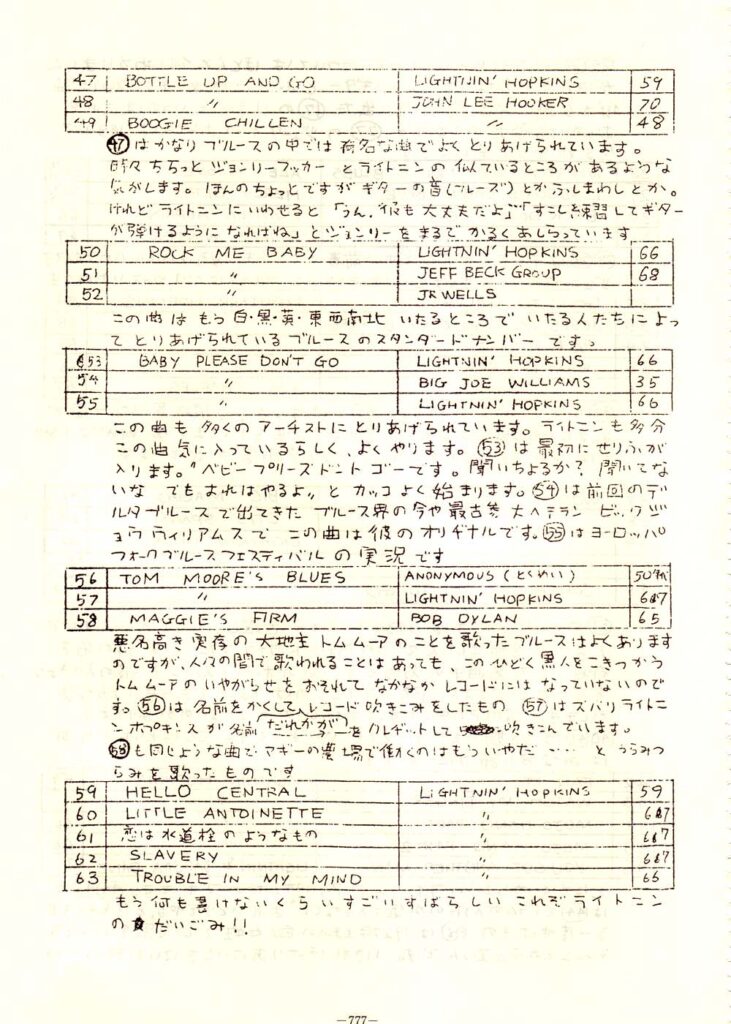 47 BOTTLE UP AND GO LIGHTNIN' HOPKINS 59
48 〃 JOHN LEE HOOKER 70
49 BOOGIE CHILLEN 〃 48
㊼はかなりブルースの中では有名な曲でよくとりあげられています。
時々ちらっとジョンリーフッカーとライトニンの似ているところがあるような
気がします。ほんのちょっとですがギターの音(フレーズ)とかふしまわしとか。
けれどライトニンにいわせると「うん.彼も大丈夫だよ」「すこし練習してギター
が弾けるようになればね」とジョンリーをまるでかるくあしらっています
50 ROCK ME BABY LIGHTNIN' HOPKINS 66
51 〃 JEFF BECK GROUP 68
52 〃 JR WELLS
この曲はもう白・黒・英・東西南北いたるところでいたる人たちによっ
てとりあげられているブルースのスタンダードナンバーです。
53 BABY PLEASE DON'T GO LIGHTNIN' HOPKINS 66
54 〃 BIG JOE WILLIAMS 35
55 〃 LIGHTNIN' HOPKINS 66
この曲も多くのアーチストにとりあげられています。ライトニンも多分
この曲気に入っているらしく、よくやります。㊾は最初にせりふが
入ります。"ベビープリーズドントゴーです。聞いちょるか? 聞いてな
いな でもおれはやるよ〃とカッコよく始まります。54は前回のデ
ルタブルースで出てきたブルース界の今や最古参大ベテランビックジ
ョウウィリアムスでこの曲は彼のオリヂナルです。55はヨーロッパ
フォークブルースフェスティバルの実況です
56 TOM MOORE'S BLUES ANONYMOUS (とくめい)
57 〃 LIGHTNIN' HOPKINS
58 MAGGIE'S FIRM BOB DYLAN 65
悪名高き実存の大地主トムムーアのことを歌ったブルースはよくあります
のですが、人々の間で歌われることはあっても、このひどく黒人をこきつかう
トムムーアのいやがらせをおそれてなかなかレコードにはなっていないので
す。56は名前をかくしてレコード吹きこみをしたもの 57はズバリライトニ
ンホプキンスが名前だれかがをクレヂットして吹きこんでいます。
58も同じような曲でマギーの農場で働くのはもういやだ‥‥とうらみつ
らみを歌ったものです
59 HELLO CENTRAL LIGHTNIN' HOPKINS 59
60 LITTLE ANTOINETTE 〃
61 恋は水道栓のようなもの 〃
62 SLAVERY 〃
63 TROUBLE IN MY MIND 〃 66
もう何も書けないくらいすごいすばらしいこれぞライトニン
のだいごみ!!
—777—